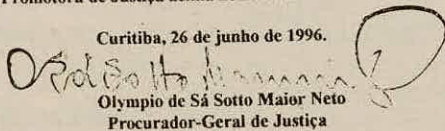 Curitiba, 26 de junho de 1996.
Olympio de Sá Sotto Maior Neto
Procurador-Geral de Justiça